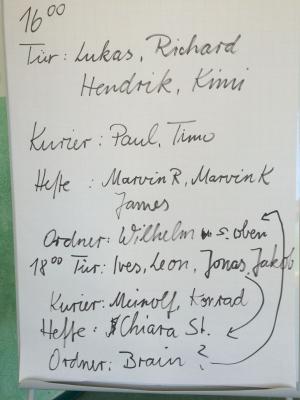 16⁰⁰
Tür: Lukas, Richard
Hendrik, Kimi
Kurier: Paul, Timo
Hefte : Marvin R, Marvin K
James
Ordner: Wilhelm s. oben
18⁰⁰ Tür: Ives, Leon, Jonas, Jakob
Kurier: Meinolf, Konrad
Hefte: Chiara St.
Ordner: Brain ?